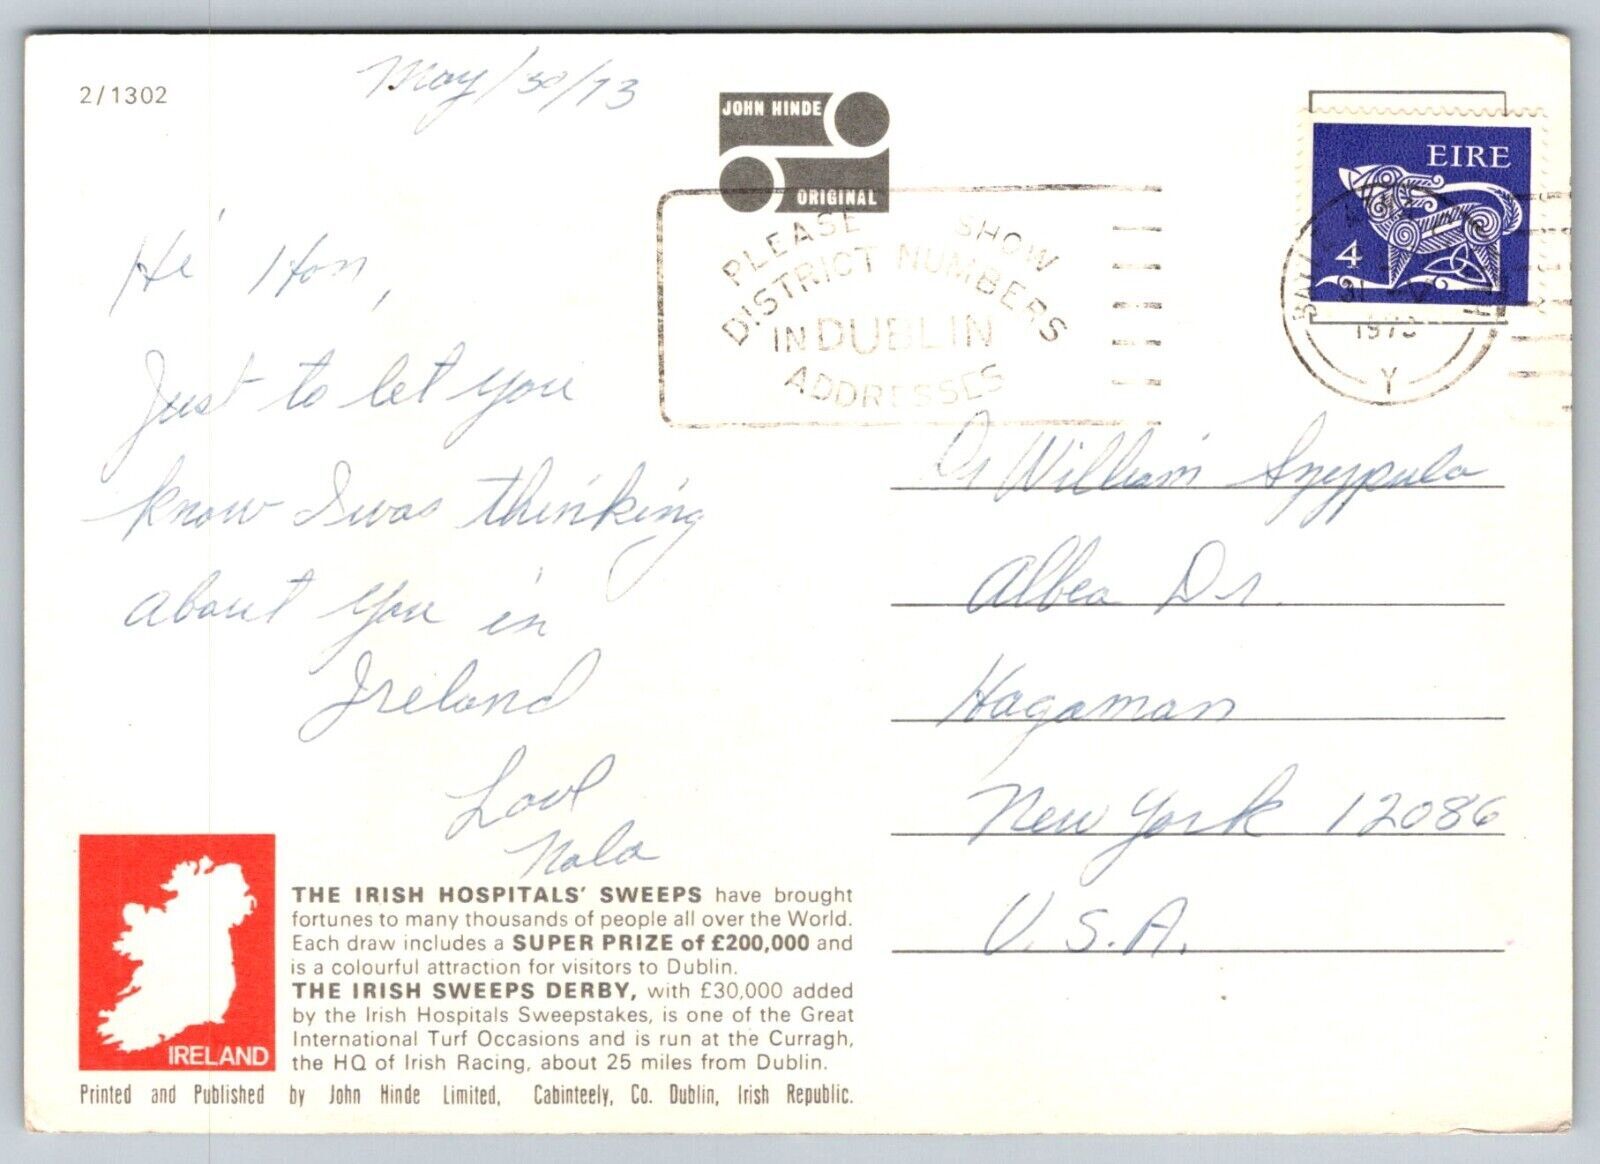 2/1302
May/30/73
JOHN HINDE
ORIGINAL
EIRE
4
PLEASE SHOW
DISTRICT NUMBERS
IN DUBLIN
ADDRESSES
31
1973
Y
Hi Hon,
Just to let you
know I was thinking
about you in
Ireland
Love
Nola
Dr William
Albea Dr.
Hagaman
New York 12086
U.S.A.
IRELAND
THE IRISH HOSPITALS' SWEEPS have brought
fortunes to many thousands of people all over the World.
Each draw includes a SUPER PRIZE of £200,000 and
is a colourful attraction for visitors to Dublin.
THE IRISH SWEEPS DERBY, with £30,000 added
by the Irish Hospitals Sweepstakes, is one of the Great
International Turf Occasions and is run at the Curragh,
the HQ of Irish Racing, about 25 miles from Dublin.
Printed and Published by John Hinde Limited, Cabinteely, Co. Dublin, Irish Republic.